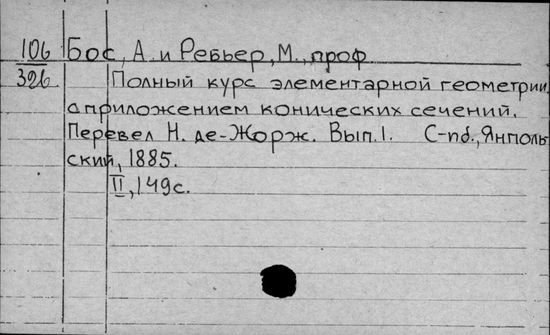 106 Бос, А. и Ребьер, М., проф.
326 Полный курс элементарной геометрии
с приложением конических сечений.
Перевел Н. де-Жорж. Вып. 1. С-пб., Янполь
ский, 1885.
II, 149 с.